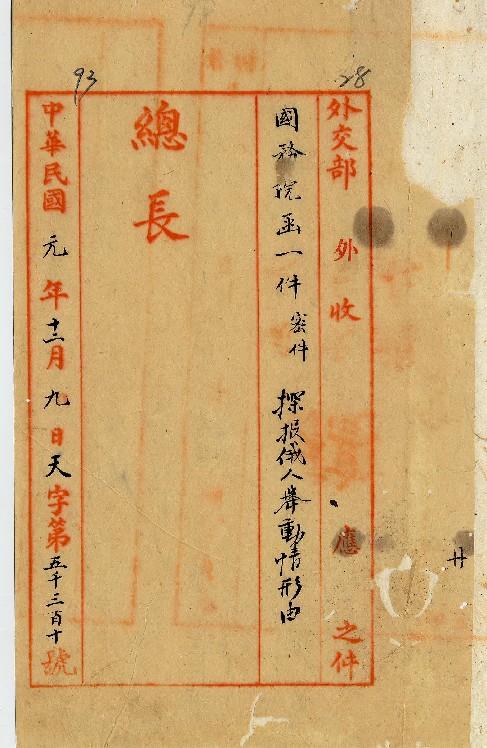 93
28
外交部 外收 應 之件
國務院函一件 密件 探报俄人舉動情形由
總長
中華民國元年十二月九日天字第五千三百十號
廿